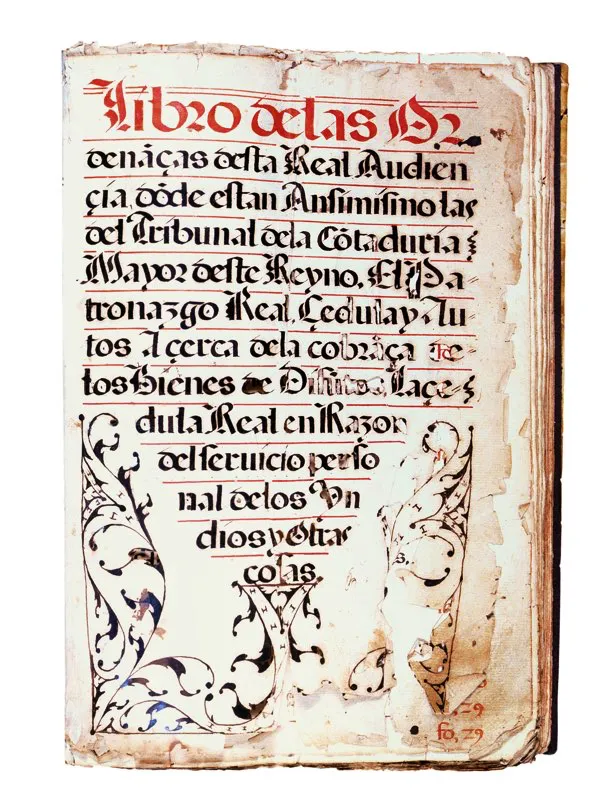 Libro delas Or
denãças desta Real Audien
çia, dõde estan Ansimismo las
del Tribunal dela Cõtaduria
Mayor deste Reyno. El Pa
tronazgo Real, Çedula y Au
tos Açerca dela cobrãça de
los Bienes de Difuntos, La çe
dula Real en Razon
del seruicio perso
nal delos Yn
dios y Otras
cosas.
s.
, 29
fo, 29